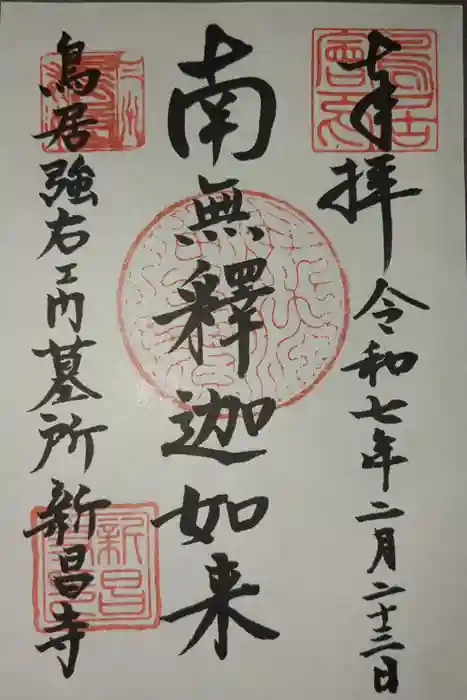 奉拝 令和七年二月二十三日
南無釋迦如来
鳥居強右エ門墓所 新昌寺
新昌